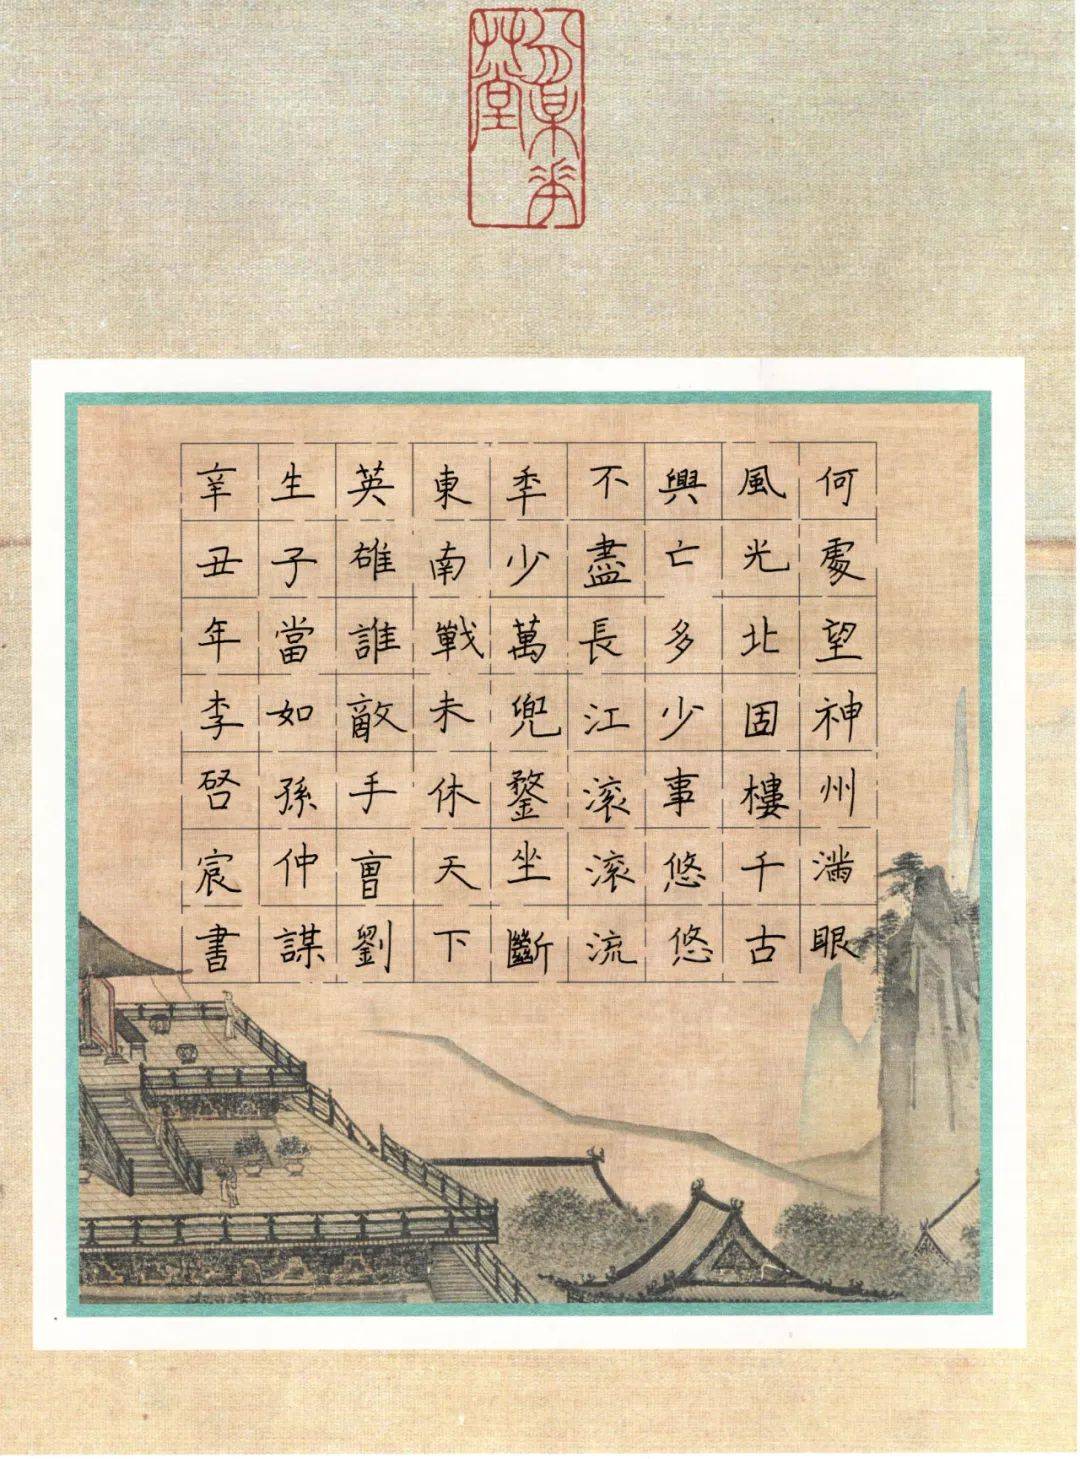 何處望神州滿眼
風光北固樓千古
興亡多少事悠悠
不盡長江滚滚流
秊少萬兜鍪坐斷
東南戰未休天下
英雄誰敵手曹劉
生子當如孫仲謀
辛丑年李啓宸書